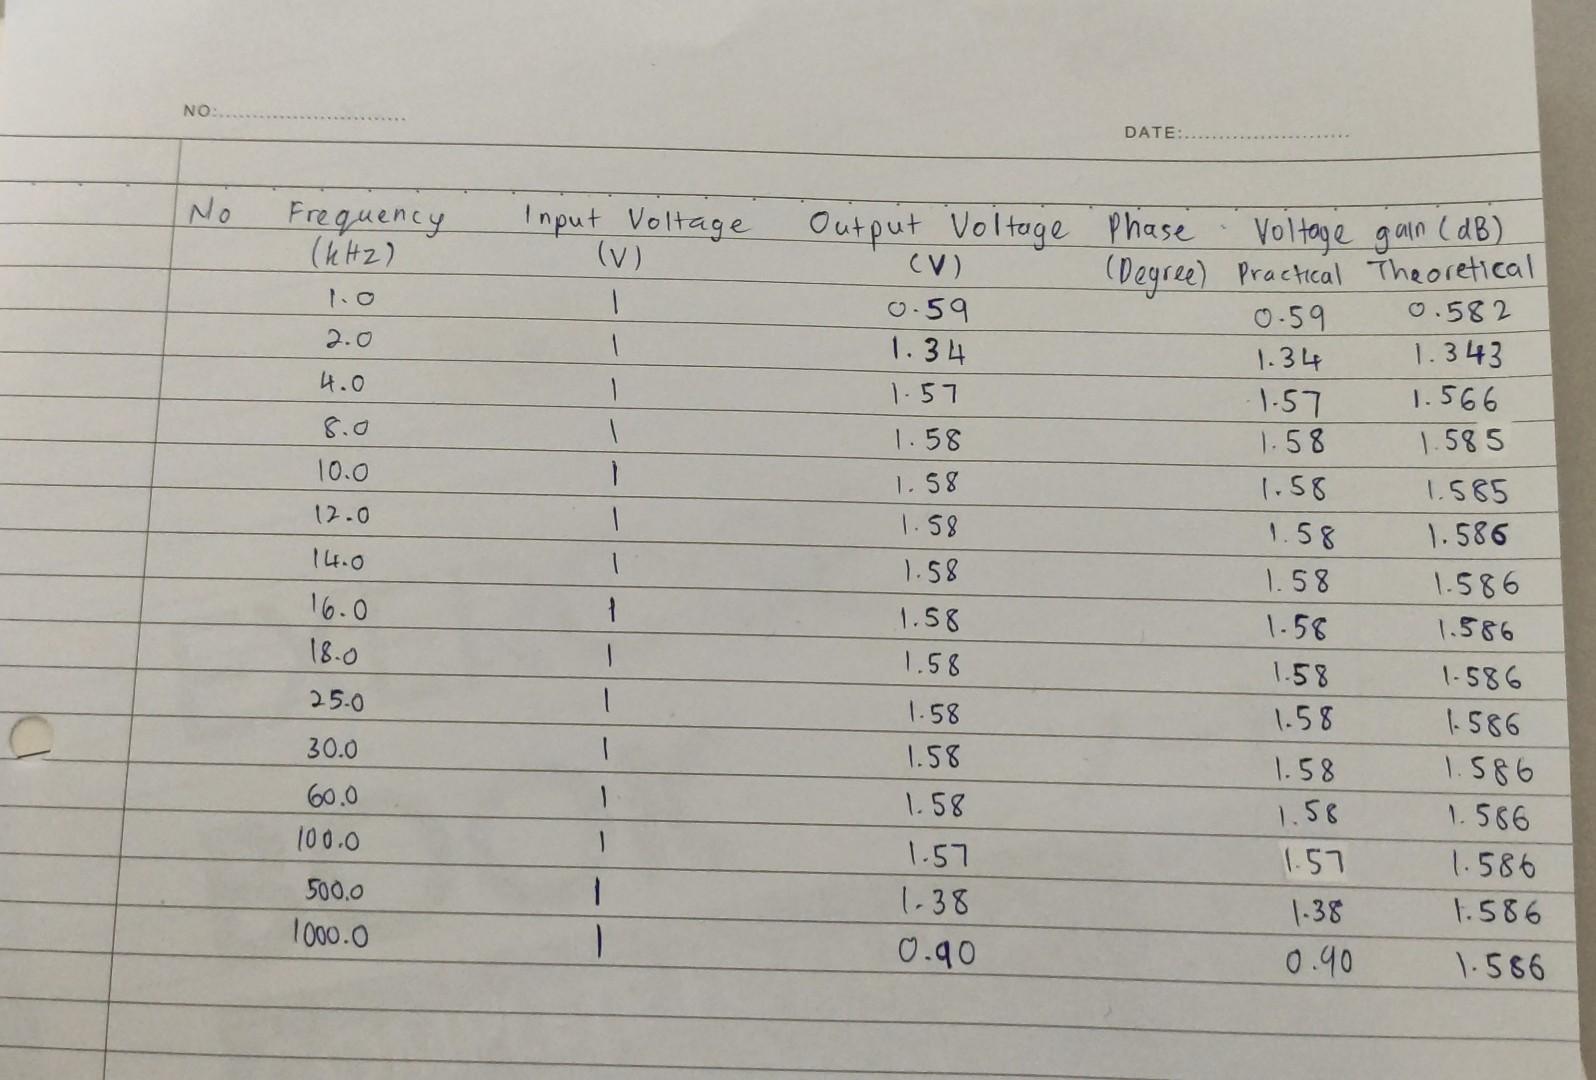 NO:
DATE:
No Frequency Input Voltage Output Voltage Phase Voltage gain (dB)
(kHz) (V) (V) (Degree) Practical Theoretical
1.0 1 0.59 0.59 0.582
2.0 1 1.34 1.34 1.343
4.0 1 1.57 1.57 1.566
8.0 1 1.58 1.58 1.585
10.0 1 1.58 1.58 1.585
12.0 1 1.58 1.58 1.586
14.0 1 1.58 1.58 1.586
16.0 1 1.58 1.58 1.586
18.0 1 1.58 1.58 1.586
25.0 1 1.58 1.58 1.586
30.0 1 1.58 1.58 1.586
60.0 1 1.58 1.58 1.586
100.0 1 1.57 1.57 1.586
500.0 1 1.38 1.38 1.586
1000.0 1 0.90 0.90 1.586